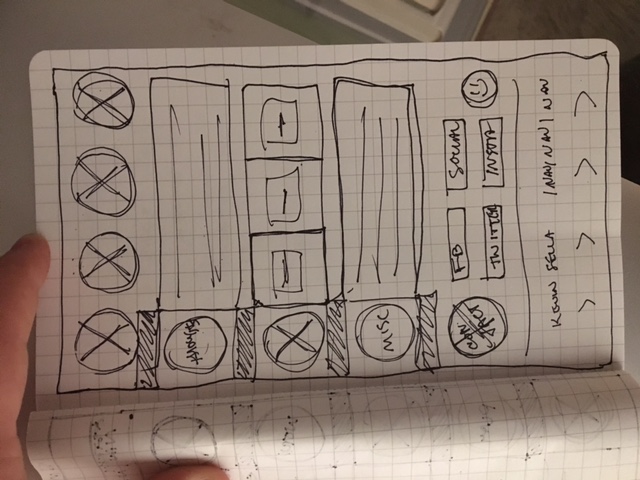 THOUGHTS
MISC
CON
TACT
FB
SOCIAL
TWITTER
INSTA
KEVIN SELLA
| NAV | NAV | NAV